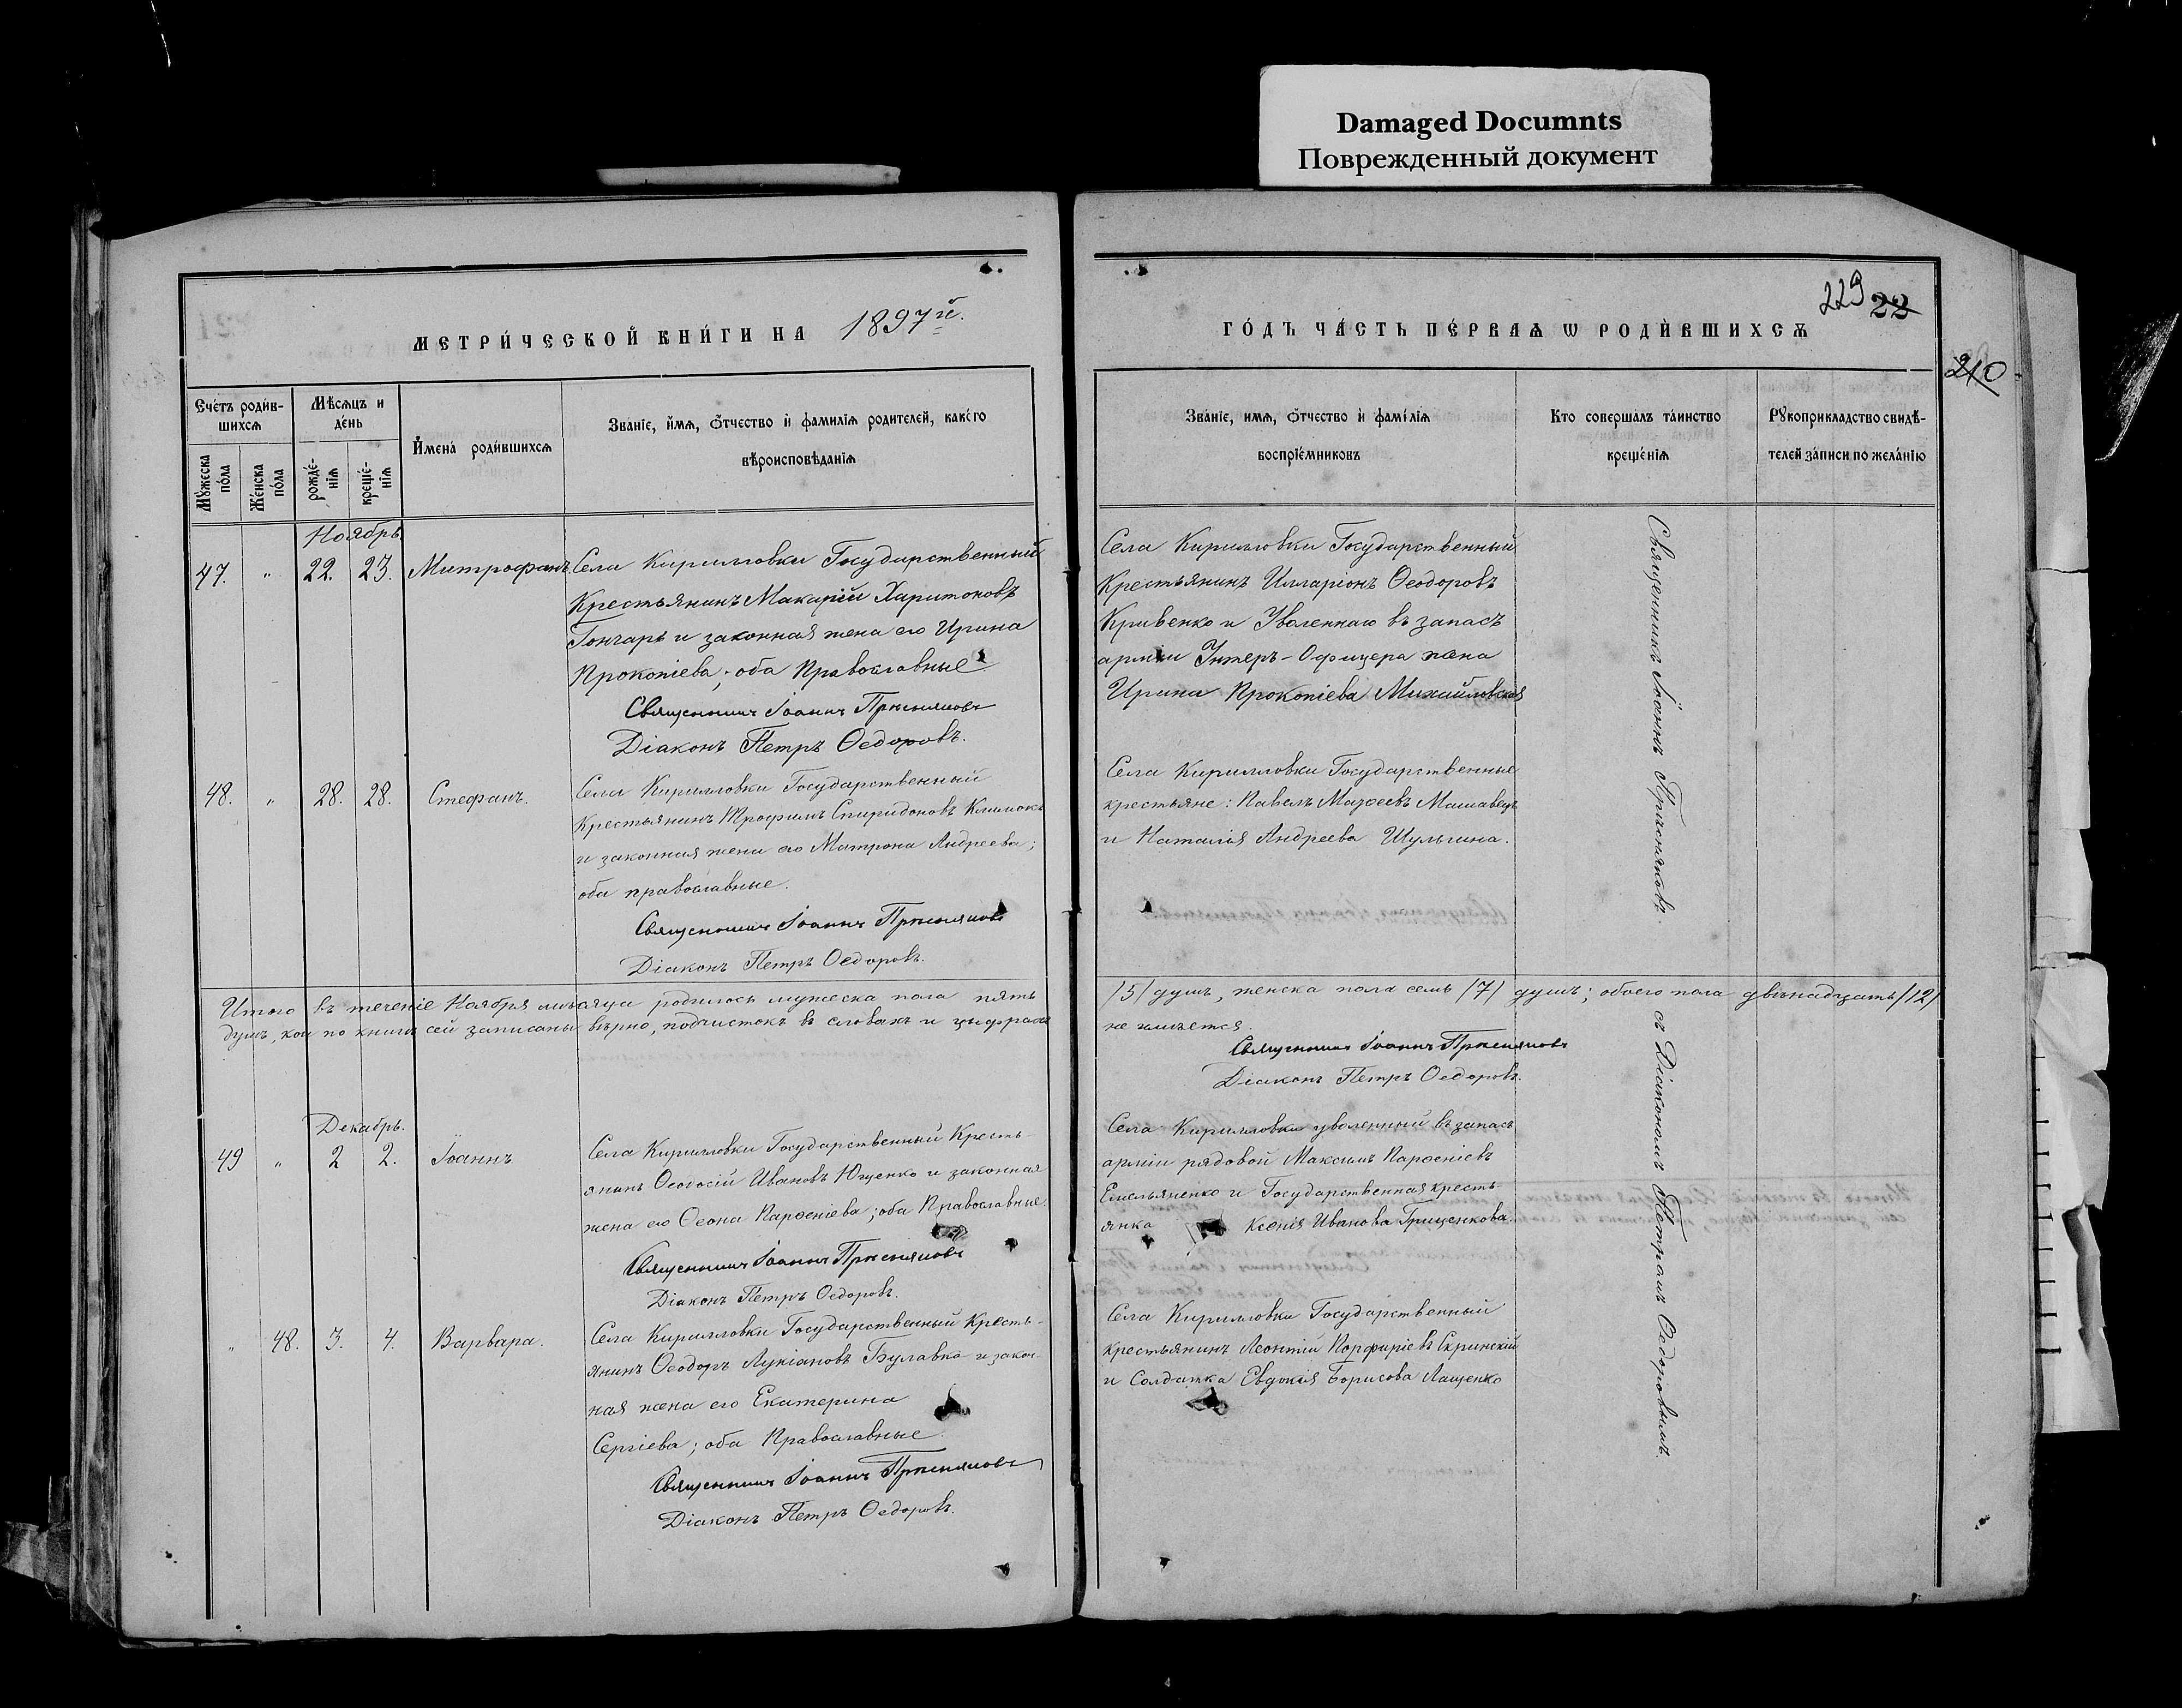 Damaged Documnts
Поврежденный документ
МЕТРИ́ЧЕСКОЙ КНИ́ГИ НА 1897й.
ГО́ДЪ ЧА́СТЬ ПЕ́РВАѦ Ѡ РОДИ́ВШИХСѦ
229 22
210
Сче́тъ роди́в-
шихсѧ
Мѣ́сѧцъ и
де́нь
Му́жеска
по́ла
Же́нска
по́ла
рожде́-
нїѧ
креще́-
нїѧ
И҆мена̀ роди́вшихсѧ
Зва́нїе, и҆́мѧ, ѻ҆́тчество и҆ фами́лїѧ роди́телей, како́го
вѣроисповѣ́данїѧ
Зва́нїе, имѧ, ѻ҆́тчество и҆ фами́лїѧ
воспрїе́мниковъ
Кто соверша́лъ та́инство
креще́нїѧ
Рꙋкоприкладство свидѣ́-
телей за́писи по жела́нїю
Ноябрь
47. " 22. 23. Митрофанъ. Села Кирилловки Государственный
Крестьянинъ Макарій Харитоновъ
Гончаръ и законная жена его Ирина
Прокопіева; оба Православные
Священникъ Іоаннъ
Діаконъ Петръ Ѳедоровъ.
Села Кирилловки Государственный
Крестьянинъ Илларіонъ Ѳеодоровъ
Кривенко и Уволеннаго въ запасъ
арміи Унтеръ-Офицера жена
Ирина Прокопіева Михайловская
48. " 28. 28. Стефанъ. Села Кирилловки Государственный
Крестьянинъ Трофимъ Спиридоновъ Климокъ
и законная жена его Матрона Андреева;
оба православные.
Священникъ Іоаннъ
Діаконъ Петръ Ѳедоровъ.
Села Кирилловки Государственные
крестьяне: Павелъ Маѳеевъ
и Наталія Андреева Шульгина.
Итого въ теченіе Ноября мѣсяца родилось мужеска пола пять /5/ душъ, женска пола семь /7/ душъ; обоего пола двѣнадцать /12/
душъ, кои по книгѣ сей записаны вѣрно, подчистокъ въ словахъ и цыфрахъ не имѣется.
Священникъ Іоаннъ
Діаконъ Петръ Ѳедоровъ.
Декабрь.
49 " 2 2. Іоаннъ Села Кирилловки Государственный Кресть-
янинъ Ѳеодосій Ивановъ Ющенко и законная
жена его Ѳеона Парѳеніева; оба Православные.
Священникъ Іоаннъ
Діаконъ Петръ Ѳедоровъ.
Села Кирилловки уволенный въ запасъ
арміи рядовой Максимъ Парѳеніевъ
Емельяненко и Государственная кресть-
янка Ксенія Иванова Гриценкова.
" 48. 3. 4. Варвара. Села Кирилловки Государственный Кресть-
янинъ Ѳеодоръ Лукіановъ Булавка и закон-
ная жена его Екатерина
Сергіева; оба Православные.
Священникъ Іоаннъ
Діаконъ Петръ Ѳедоровъ.
Села Кирилловки Государственный
крестьянинъ Леонтій Порфиріевъ Скринскій
и Солдатка Евдокія Борисова Лащенко
Священникъ Іоаннъ
съ Діакономъ Петромъ Ѳедоровымъ.